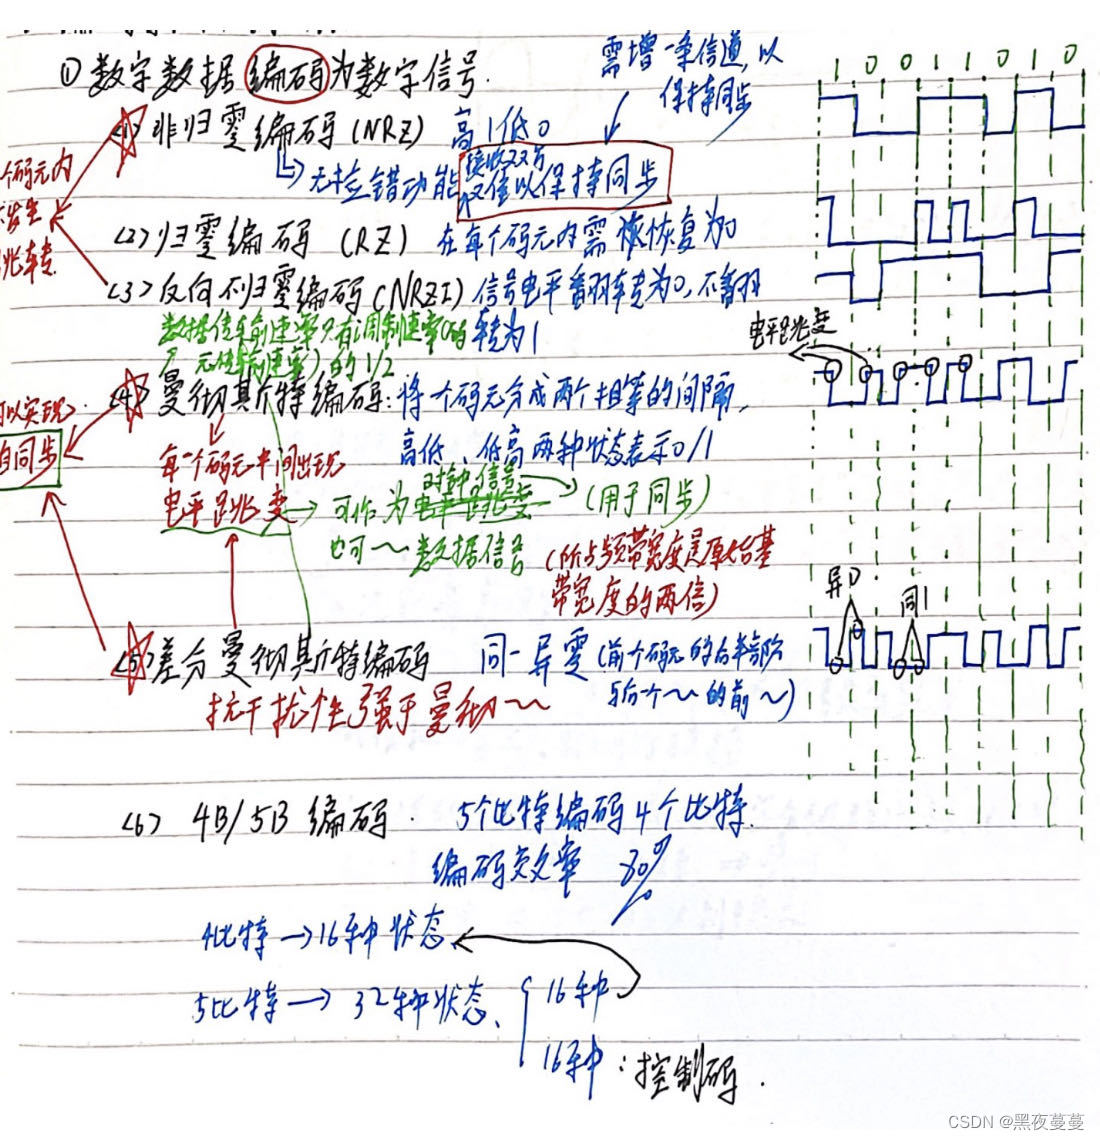 ① 数字数据编码为数字信号.
需增一条信道,以
保持同步
1 0 0 1 1 0 1 0
<1> 非归零编码(NRZ) 高1低0
个码元内
无检错功能
接收双方
以保持同步
<2> 归零编码(RZ) 在每个码元内需恢复为0
跳转
<3> 反向不归零编码(NRZI) 信号电平翻转为0,不翻
转为1
数据传输速率只有调制速率
元传输速率)的1/2
电平跳变
<4> 曼彻斯特编码:将一个码元分成两个相等的间隔,
高低、低高两种状态表示0/1
可以实现
自同步
每一个码元中间出现
电平跳变→可作为电平跳变
时钟信号
(用于同步)
也可~数据信号
(所占频带宽度是原始基
带宽度的两倍)
异0
同1
<5> 差分曼彻斯特编码 同一异零(前个码元的后半部分
与后个~的前~)
抗干扰性强于曼彻~
<6> 4B/5B 编码. 5个比特编码4个比特.
编码效率 80%
4比特→16种状态
5比特→32种状态、
16种
16种:控制码.
CSDN @黑夜蔓蔓